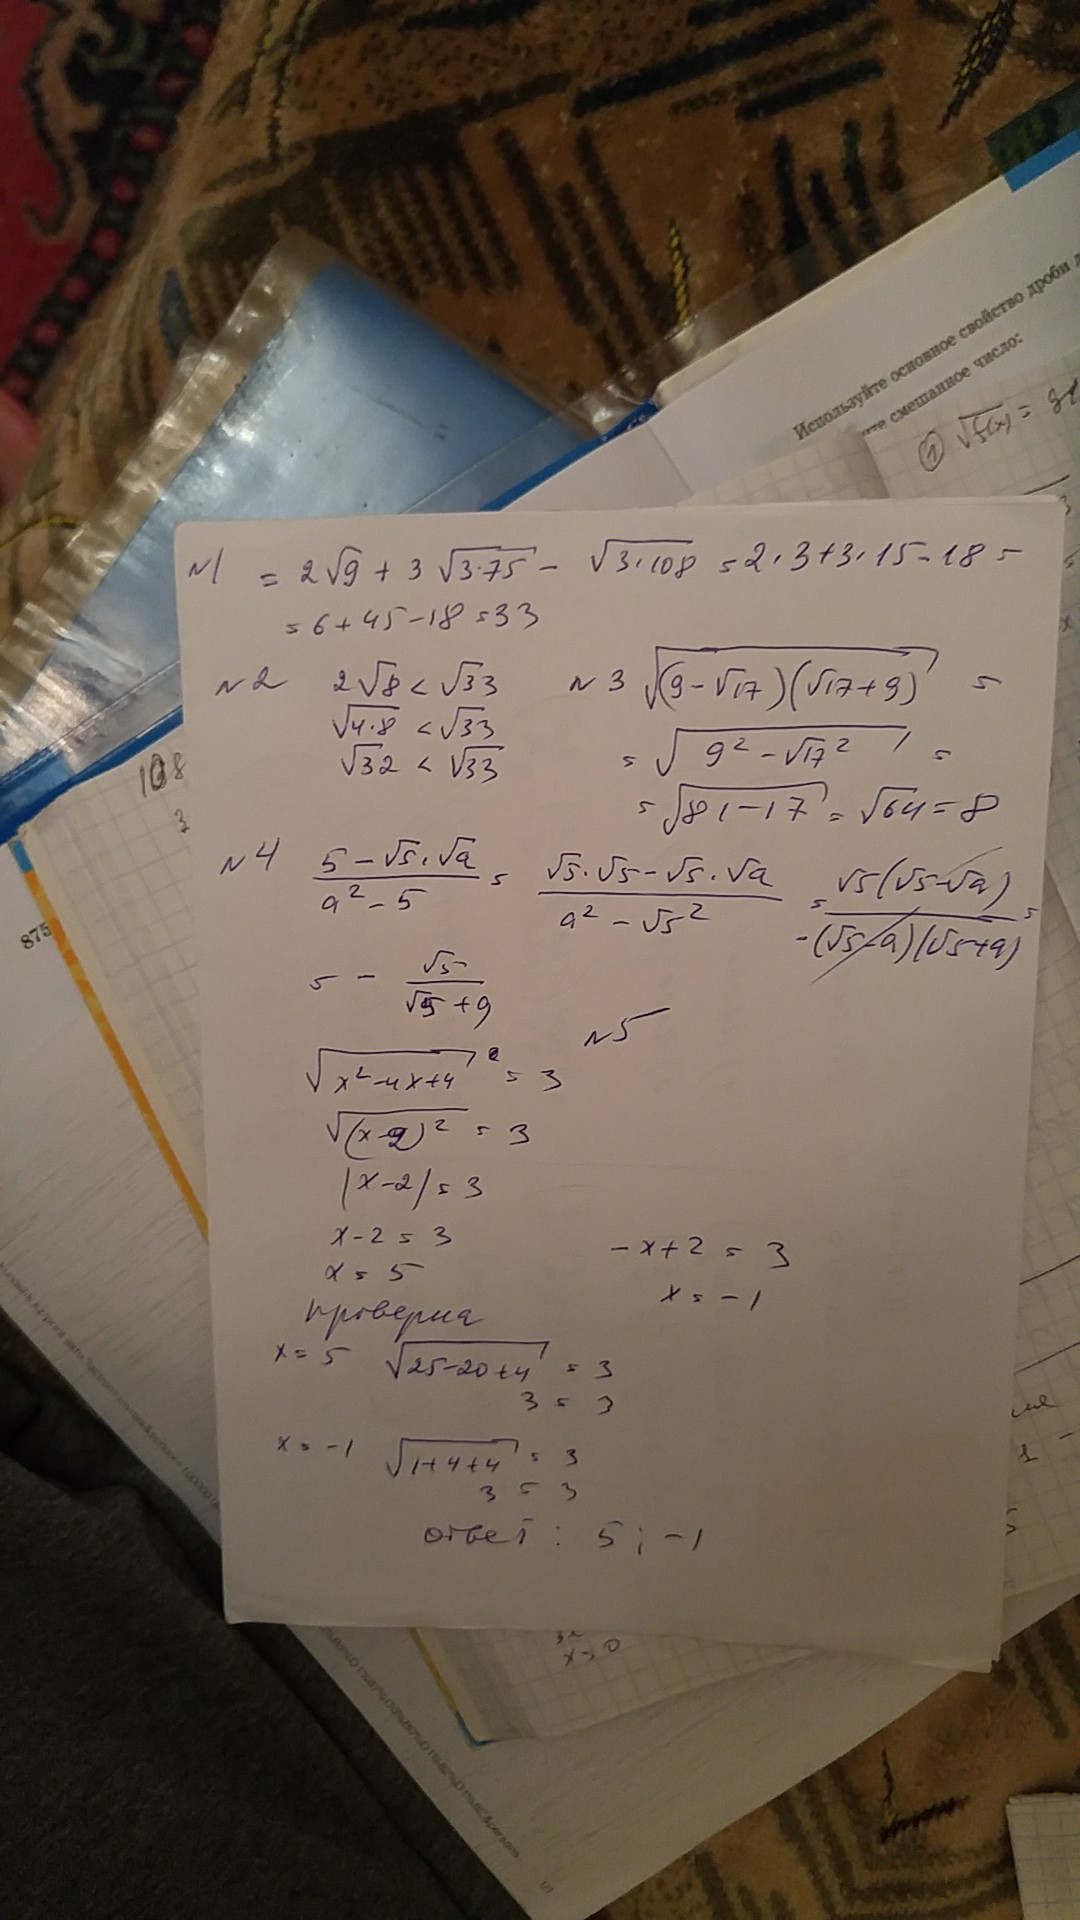 Используйте основное свойство дроби
смешанное число:
① √5(x) =
N1 = 2√9 + 3√(3·75) - √(3·108) = 2·3+3·15-18 =
= 6+45-18=33
N2 2√8 < √33
√(4·8) < √33
√32 < √33
N3 √((9-√17)(√17+9)) =
= √(9² - √17²) =
= √(81-17) = √64 = 8
108
3
N4 (5 - √5·√a)/(a² - 5) = (√5·√5 - √5·√a)/(a² - √5²) = √5(√5-√a)/(-(√5-a)(√5+a)) =
875
= - √5/(√5+a)
N5
√(x²-4x+4) = 3
√((x-2)²) = 3
|x-2| = 3
x-2 = 3 -x+2 = 3
x = 5 x = -1
проверка
x = 5 √(25-20+4) = 3
3 = 3
x = -1 √(1+4+4) = 3
3 = 3
ответ: 5; -1
x=0